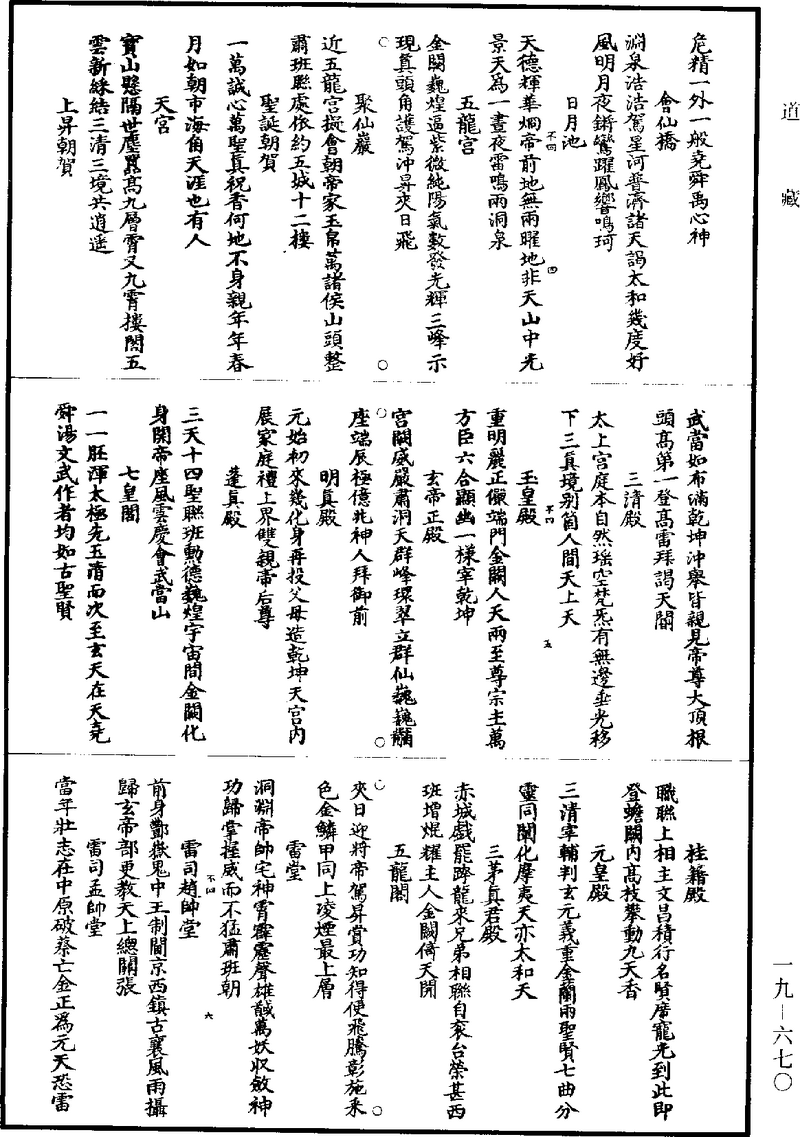 道藏
危精一外一般堯舜禹心神
會仙橋
淵泉浩浩駕星河普濟諸天謁太和幾度好
風明月夜鏘鸞躍鳳響鳴珂
日月池
天德輝華烱帝前地無兩曜地非天山中光
景天為一晝夜雷鳴兩洞泉
不四
四
五龍宫
金闕巍煌逼紫微純陽氣數發光輝三峰示
現真頭角護駕沖昇夾日飛
聚仙巖
近五龍宫擬會朝帝家玉帛萬諸侯山頭整
肅班聯處依約五城十二樓
聖誕朝賀
一萬誠心萬聖真祝香何地不身親年年春
月如朝市海角天涯也有人
天宫
寶山懸隔世塵罠高九層霄又九霄樓閣五
雲新綵結三清三境共逍遥
上昇朝賀
武當如布滿乾坤沖舉皆親見帝尊大頂根
頭高第一登高雷拜謁天閽
三清殿
太上宫庭本自然瑶空梵炁有無邊垂光移
下三真境别箇人間天上天
玉皇殿
不四
五
重明麗正儼端門金闕人天兩至尊宗主萬
方臣六合顯幽一樣宰乾坤
玄帝正殿
宫闕威嚴肅洞天群峰環翠立群仙巍巍黼
座端辰極億兆神人拜御前
明真殿
元始初來幾化身再投父母造乾坤天宫内
展家庭禮上界雙親帝后尊
蓬真殿
三天十四聖聯班勲德巍煌宇宙間金闕化
身開帝座風雲慶會武當山
七皇閣
一一胚渾太極先五清而次至玄天在天堯
舜湯文武作者均如古聖賢
桂籍殿
職聯上相主文昌積行名賢廣寵光到此即
登蟾闕内高枝攀動九天香
元皇殿
三清宰輔判玄元義重金蘭兩聖賢七曲分
靈同闡化摩夷天亦太和天
三茅真君殿
赤城戲罷躋龍來兄弟相聯自衮台榮甚西
班增焜耀主人金闕倚天開
五龍閣
夾日迎將帝駕昇賞功知得使飛騰彰施采
色金鱗甲同上凌煙最上層
雷堂
洞淵帝師宅神霄霹靂聲雄馘萬妖収斂神
功歸掌握威而不猛肅班朝
雷司趙帥堂
不四
六
前身酆嶽鬼中王制閫京西鎮古襄風雨攝
歸玄帝部更教天上總關張
雷司孟帥堂
當年壯志在中原破蔡亡金正為元天恐雷
一九—六七〇